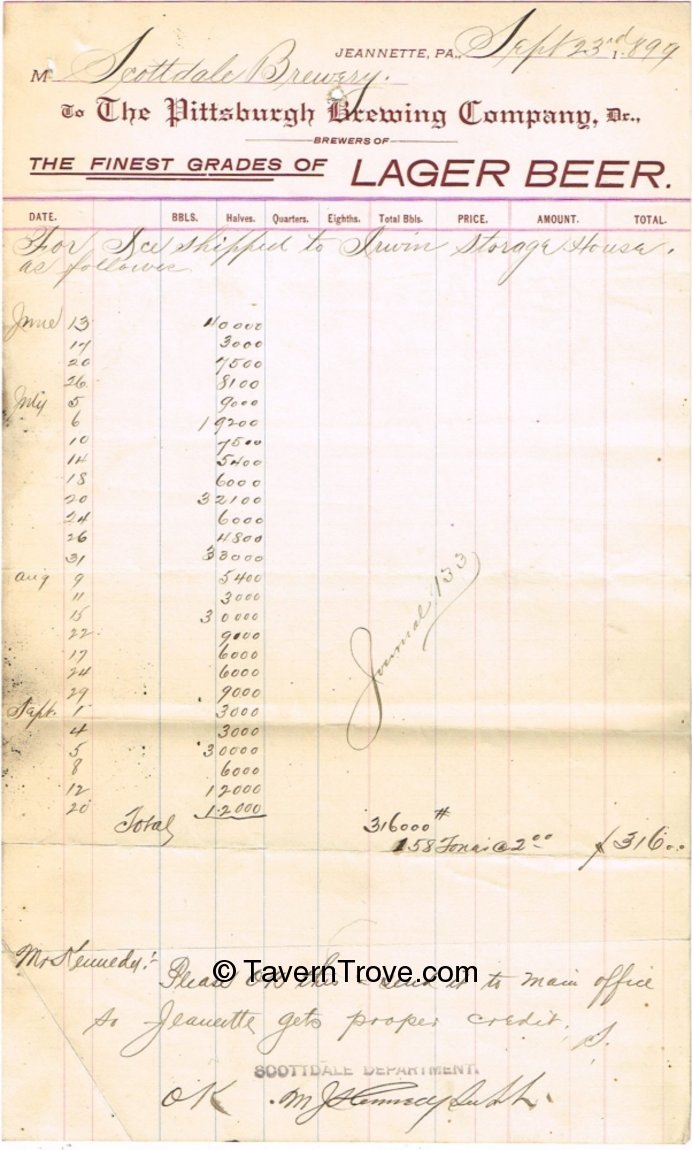 JEANNETTE, PA., Sept 23rd 1899
M Scottdale Brewery.
To The Pittsburgh Brewing Company, Dr.,
BREWERS OF
THE FINEST GRADES OF LAGER BEER.
DATE. BBLS. Halves. Quarters. Eighths. Total Bbls. PRICE. AMOUNT. TOTAL.
For Ice shipped to Irwin Storage House.
as follows
June 13 40000
17 3000
20 7500
26 8100
July 5 9000
6 19200
10 7500
14 5400
18 6000
20 32100
24 6000
26 4800
31 33000
Aug 9 5400
11 3000
15 30000
22 9000
17 6000
24 6000
29 9000
Sept. 1 3000
4 3000
5 30000
8 6000
12 12000
20 12000
Journal 133
Total 316000 #
158 Tons @ 2 00 $ 316 00
Mr Kennedy:-
Please OK this & send it to main office
so Jeanette gets proper credit.
S.
SCOTTDALE DEPARTMENT.
OK M J Kennedy
© TavernTrove.com